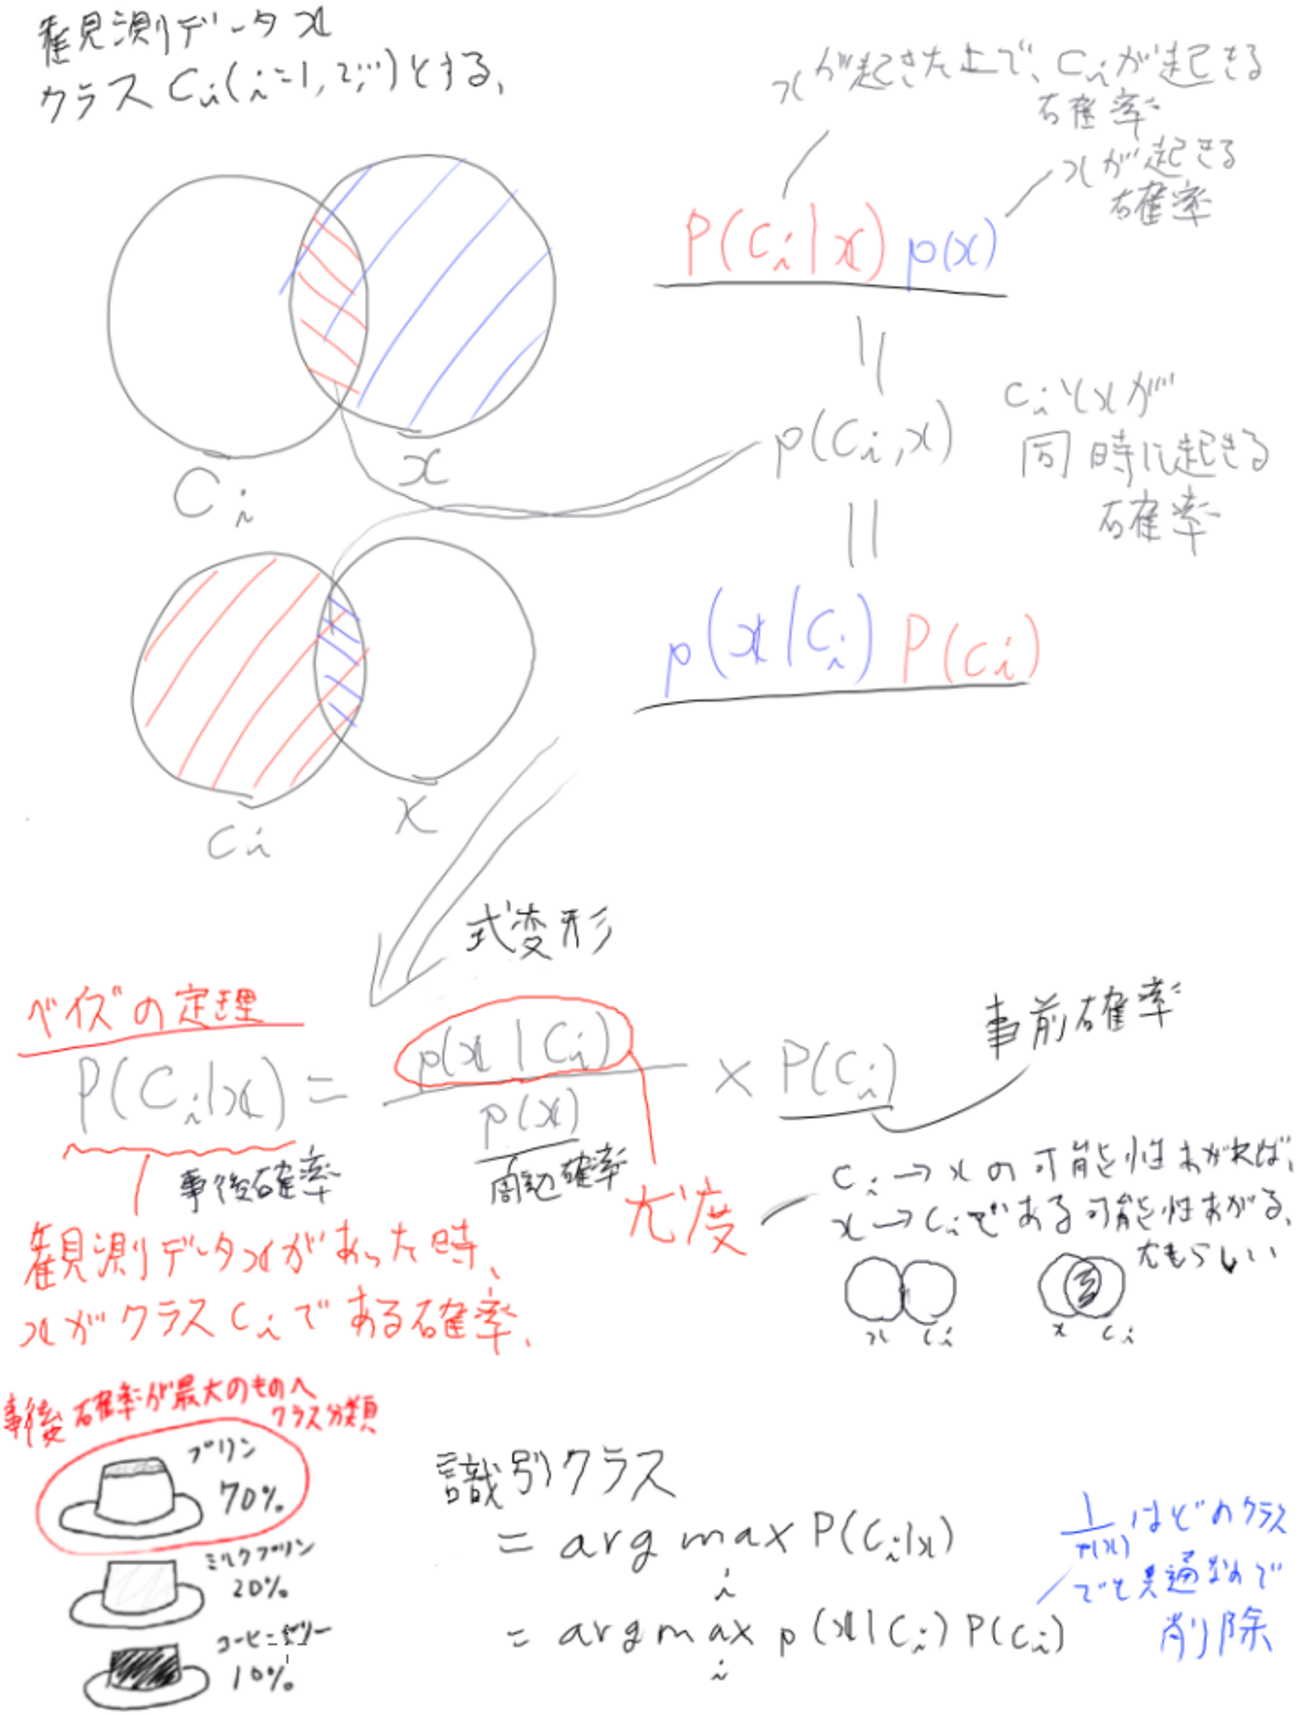 観測データx
クラスCi(i=1,2,…)とする、
xが起きた上で、Ciが起きる
確率
xが起きる
確率
P(Ci|x)p(x)
||
Ci
x
p(Ci,x)
Ciとxが
同時に起きる
確率
||
p(x|Ci)P(Ci)
Ci
x
式変形
ベイズの定理
事前確率
P(Ci|x) = p(x|Ci) / p(x) × P(Ci)
事後確率
周辺確率
尤度
Ci→xの可能性あがれば、
x→Ciである可能性あがる、
尤もらしい
x Ci
x Ci
観測データxがあった時、
xがクラスCiである確率、
事後確率が最大のものへ
クラス分類
プリン
70%
ミルクプリン
20%
コーヒーゼリー
10%
識別クラス
= arg max P(Ci|x)
i
= arg max p(x|Ci)P(Ci)
i
1/p(x) はどのクラス
でも共通なので
削除